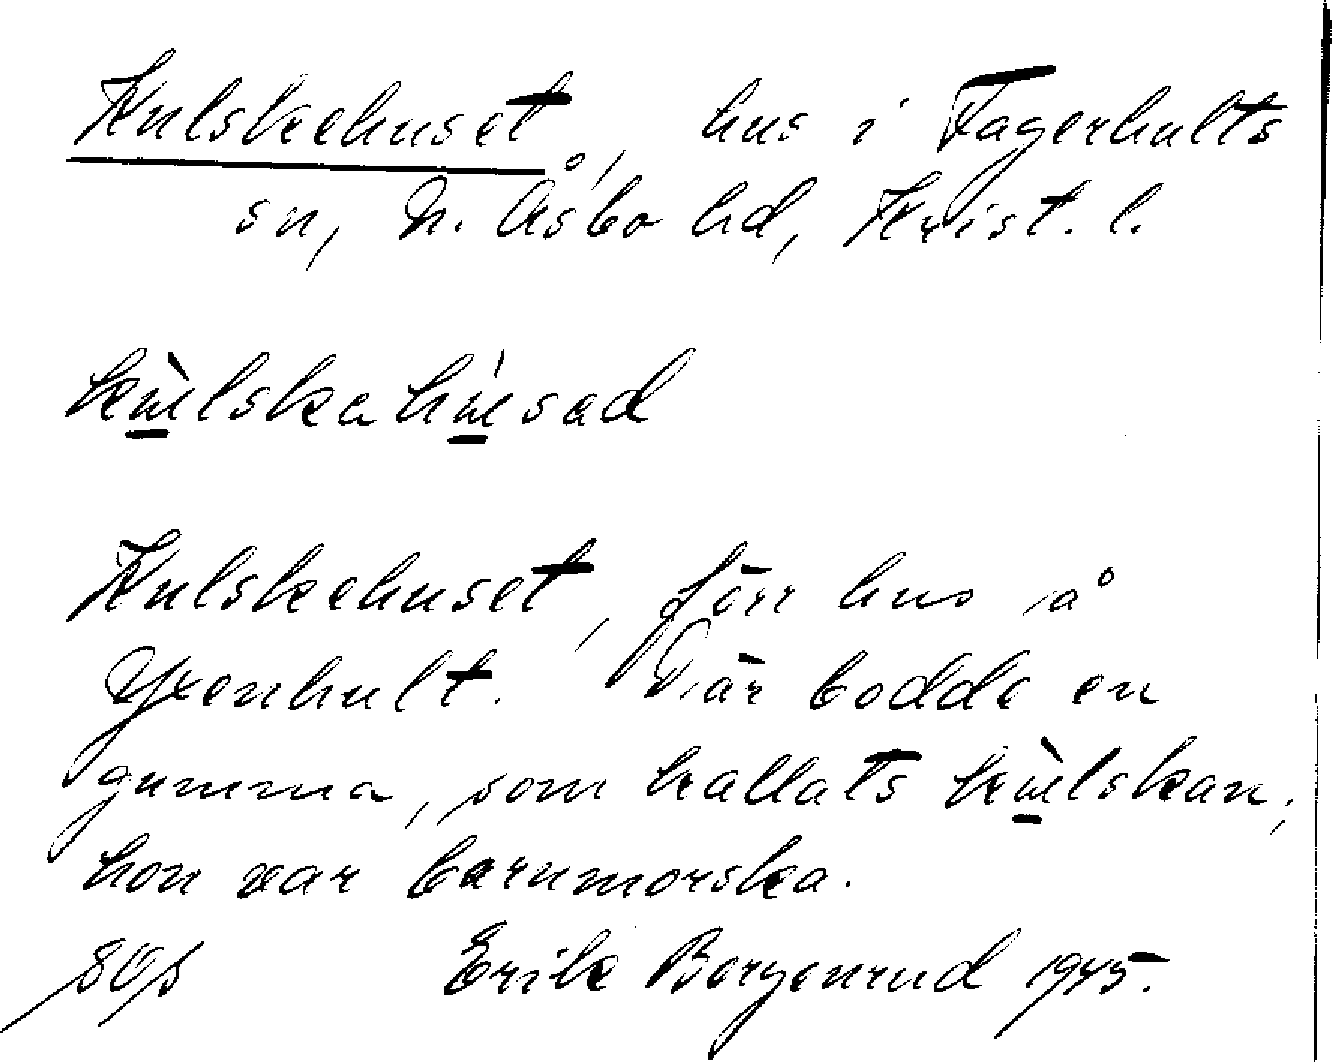 Kulskehuset, hus i Fagerhults
sn, N. Åsbo hd, Krist. l.
kùlskahúsad
Kulskehuset, förr hus å
Yxenhult. Där bodde en
gumma, som kallats kùlskan,
hon var barnmorska.
Erik Borgenrud 1945.